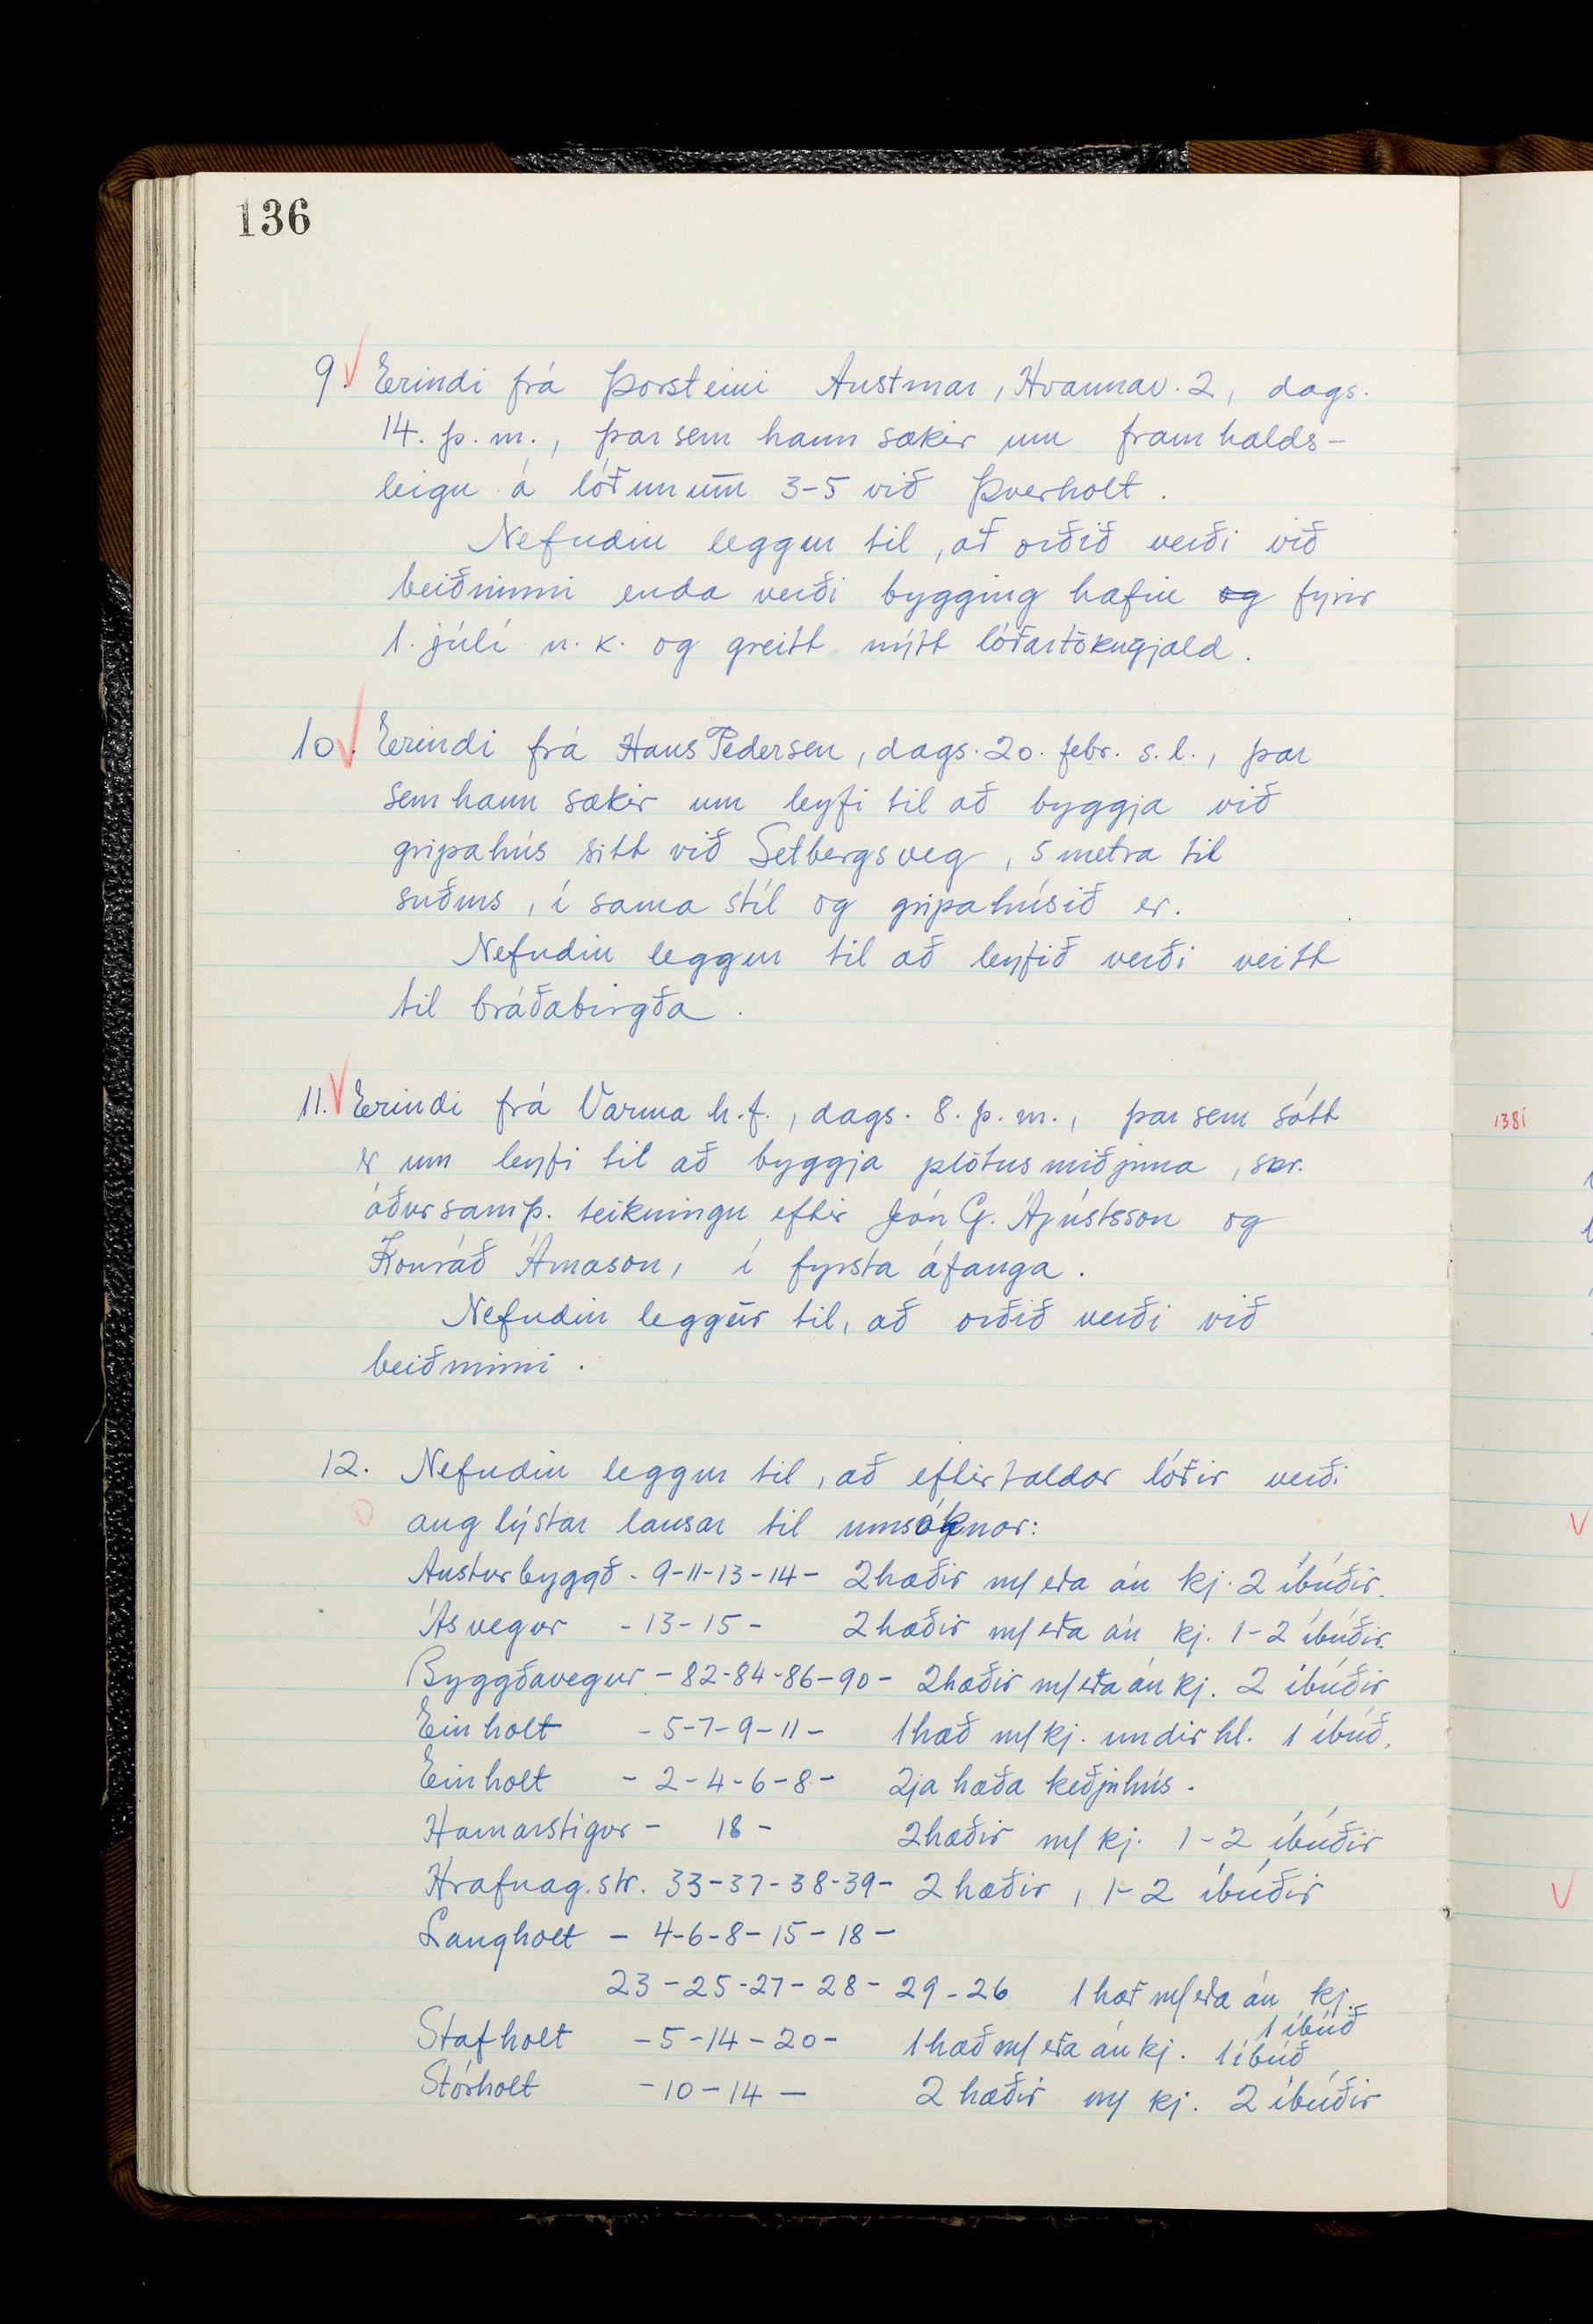 136
9. Erindi frá Þorsteini Austmar, Hvannav. 2, dags.
14. þ. m., þar sem hann sækir um framhalds-
leigu á lóðunum 3-5 við Þverholt.
Nefndin leggur til, að orðið verði við
beiðninni enda verði bygging hafin og fyrir
1. júlí n. k. og greitt nýtt lóðartökugjald.
10. Erindi frá Hans Pedersen, dags. 20. febr. s. l., þar
sem hann sækir um leyfi til að byggja við
gripahús sitt við Setbergsveg, 5 metra til
suðurs, í sama stíl og gripahúsið er.
Nefndin leggur til að leyfið verði veitt
til bráðabirgða.
11. Erindi frá Varma h.f., dags. 8. þ. m., þar sem sótt
er um leyfi til að byggja plötusmiðjuna, skr.
áður samþ. teikningu eftir Jón G. Ágústsson og
Konráð Árnason, í fyrsta áfanga.
Nefndin leggur til, að orðið verði við
beiðninni.
12. Nefndin leggur til, að eftirtaldar lóðir verði
auglýstar lausar til umsóknar:
Austurbyggð - 9-11-13-14- 2 hæðir m/eða án kj. 2 íbúðir.
Ásvegur - 13-15- 2 hæðir m/eða án kj. 1-2 íbúðir.
Byggðavegur - 82-84-86-90- 2 hæðir m/eða án kj. 2 íbúðir
Einholt - 5-7-9-11- 1 hæð m/kj. undir hl. 1 íbúð.
Einholt - 2-4-6-8- 2ja hæða keðjuhús.
Hamarstigur - 18- 2 hæðir m/ kj. 1-2 íbúðir
Hrafnag.str. 33-37-38-39- 2 hæðir, 1-2 íbúðir
Langholt - 4-6-8-15-18-
23-25-27-28-29-26 1 hæð m/eða án kj.
1 íbúð
Stafholt - 5-14-20- 1 hæð m/eða án kj. 1 íbúð
Stórholt - 10-14- 2 hæðir m/ kj. 2 íbúðir
138i